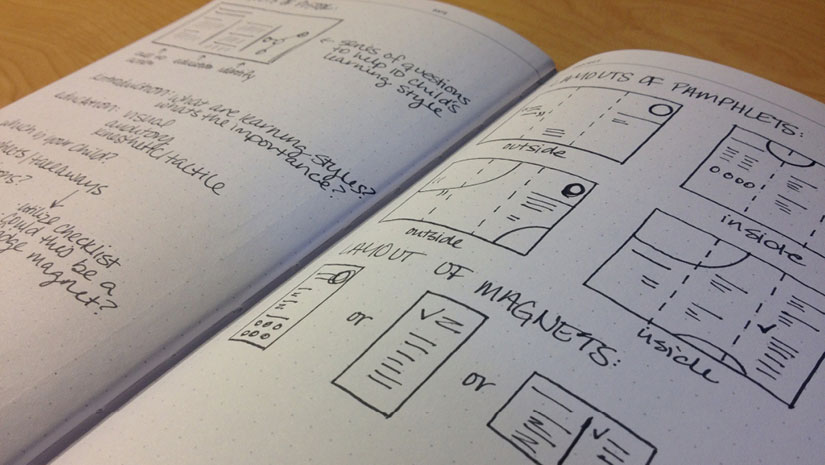 ← series of questions
to help ID child's
learning style
introduction: what are learning styles?
what's the importance?
education: visual
auditory
kinesthetic/tactile
which is your child?
takeaways
utilize checklist
could this be a
magnet?
LAYOUTS OF PAMPHLETS:
outside
inside
outside
inside
LAYOUT OF MAGNETS:
or
or